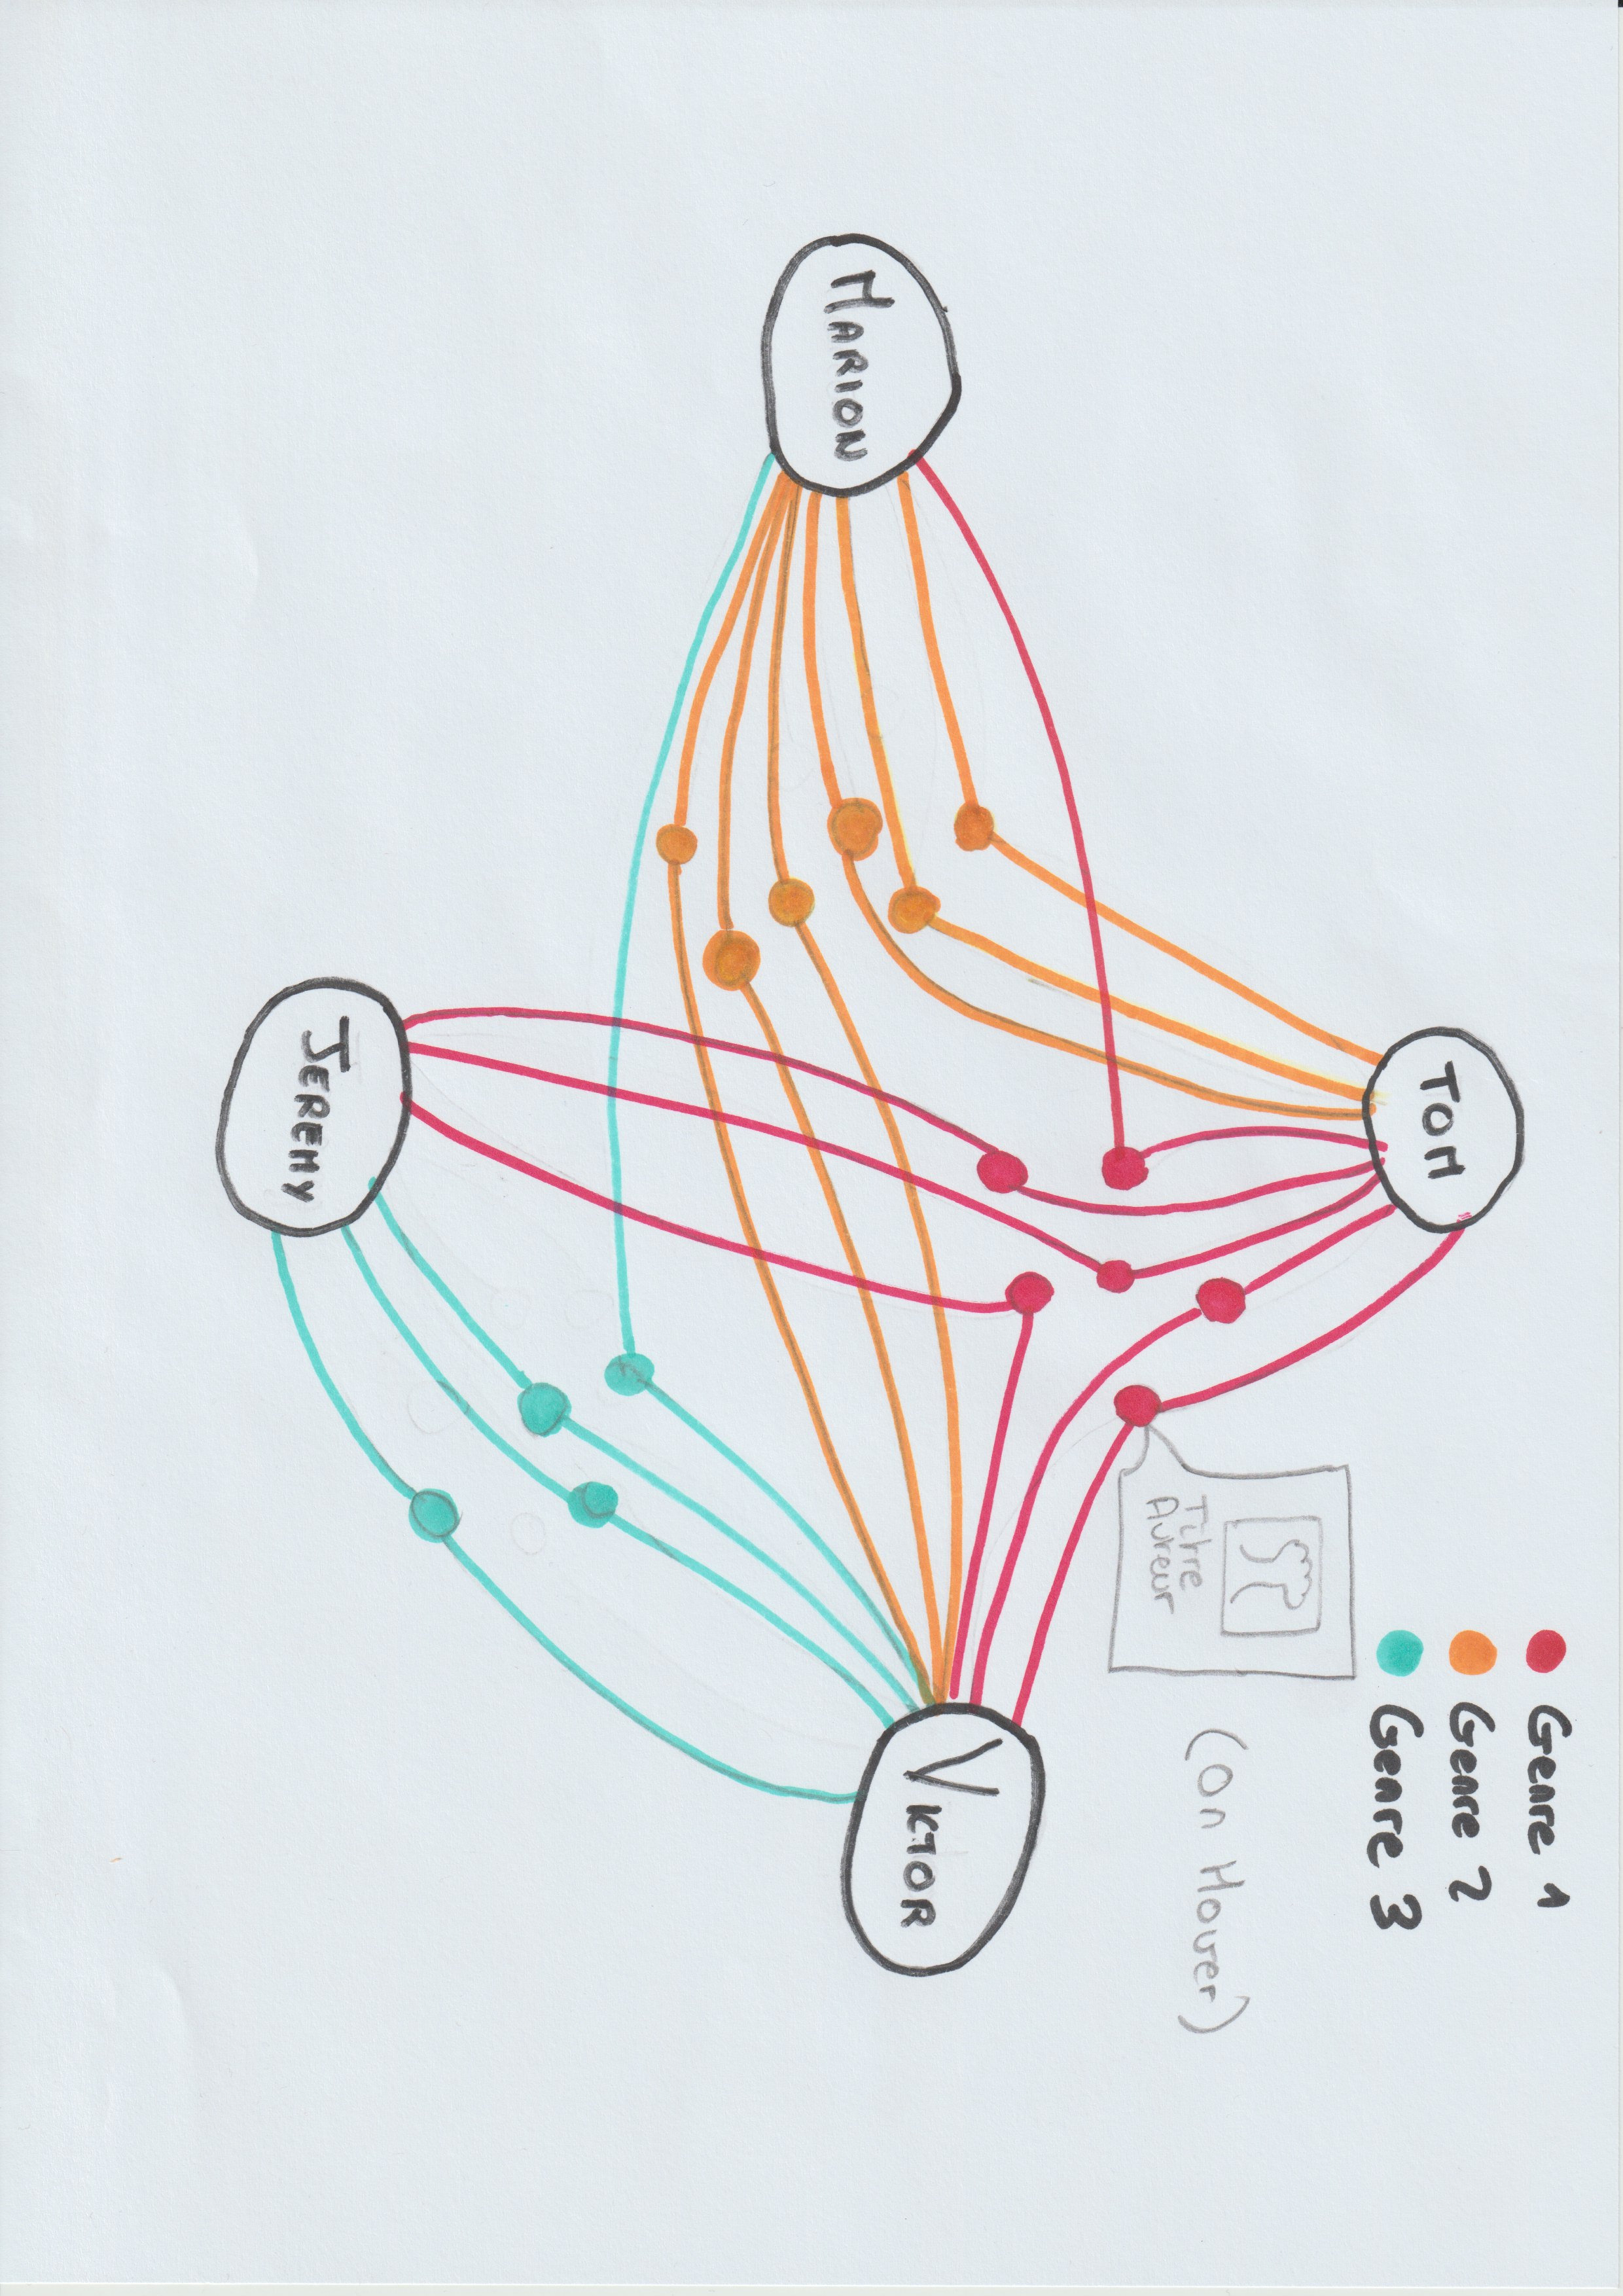 Genre 1
Genre 2
Genre 3
TOM
Titre
Auteur
(On Hover)
VIKTOR
MARION
JEREMY